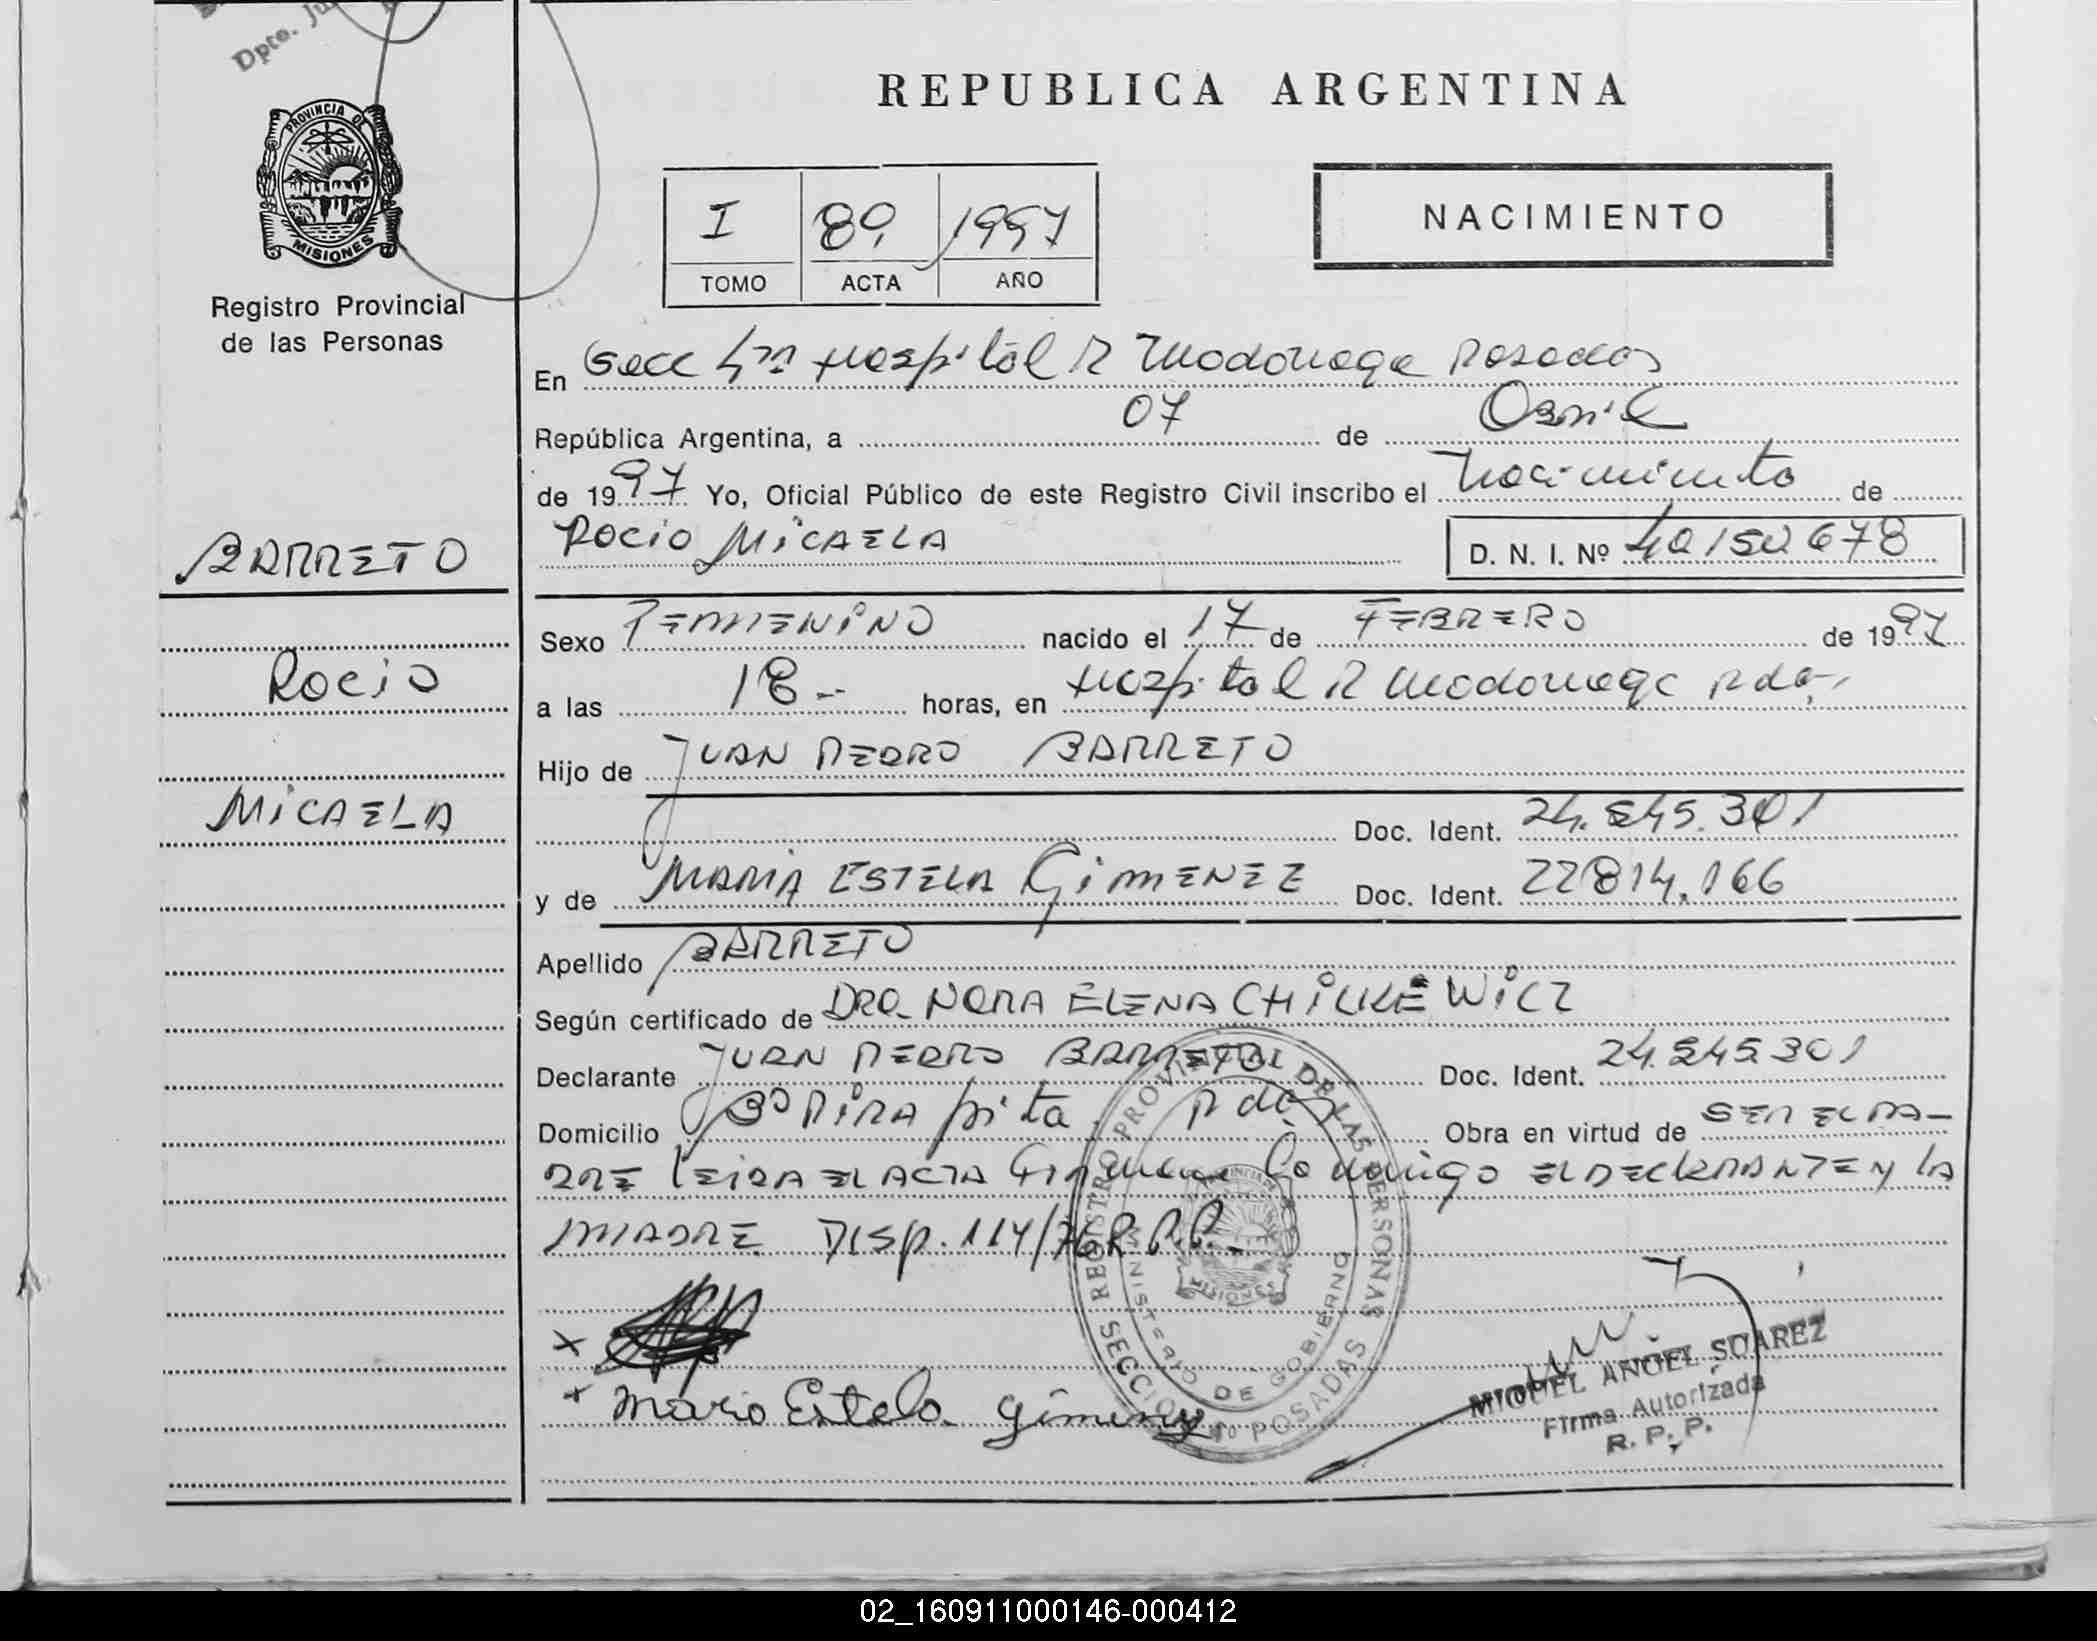 Dpto. Ju
REPUBLICA ARGENTINA
PROVINCIA DE
MISIONES
Registro Provincial
de las Personas
I 80, 1997
TOMO ACTA AÑO
NACIMIENTO
En Secc 4ta Hospital R Madariaga Posadas
República Argentina, a 07 de Abril
de 1997 Yo, Oficial Público de este Registro Civil inscribo el Nacimiento de
ROCIO MICAELA D. N. I. Nº 40150678
BARRETO
Rocio
MICAELA
Sexo FEMMENINO nacido el 17 de FEBRERO de 1997
a las 18-- horas, en Hospital R Madariaga Pdas,
Hijo de JUAN PEDRO BARRETO
Doc. Ident. 24.545.301
y de MARIA ESTELA GIMENEZ Doc. Ident. 22814.166
Apellido BARRETO
Según certificado de DRA. NORA ELENA
Declarante JUAN PEDRO BARRETO Doc. Ident. 24.545301
Domicilio Bº PIRA pita Pdas Obra en virtud de SER EL PA-
DRE LEIDA EL ACTA Firman Conmigo EL DECLARANTE y LA
MADRE DISP. 114/76 R.P.P.
x
+ Maria Estela Gimenez
REGISTRO PROVINCIAL DE LAS PERSONAS
MINISTERIO DE GOBIERNO
SECCION 4to POSADAS
MISIONES
MIGUEL ANGEL SUAREZ
Firma Autorizada
R. P. P.
02_160911000146-000412